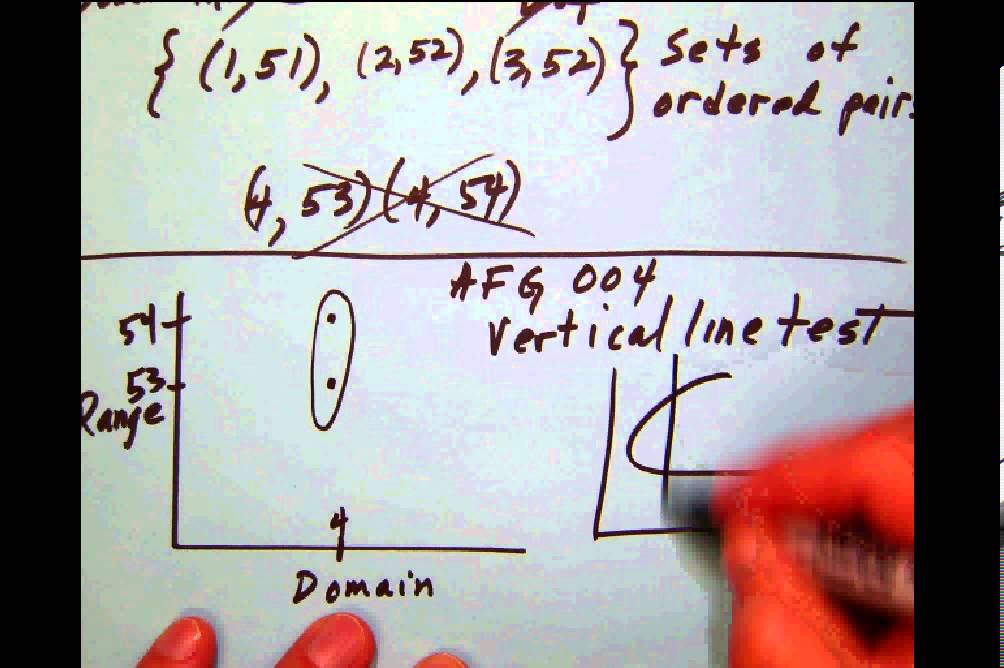 { (1,51), (2,52), (3,52) } Sets of
ordered pairs
(4, 53) (4, 54)
AFG 004
Vertical line test
54
53
Range
4
Domain